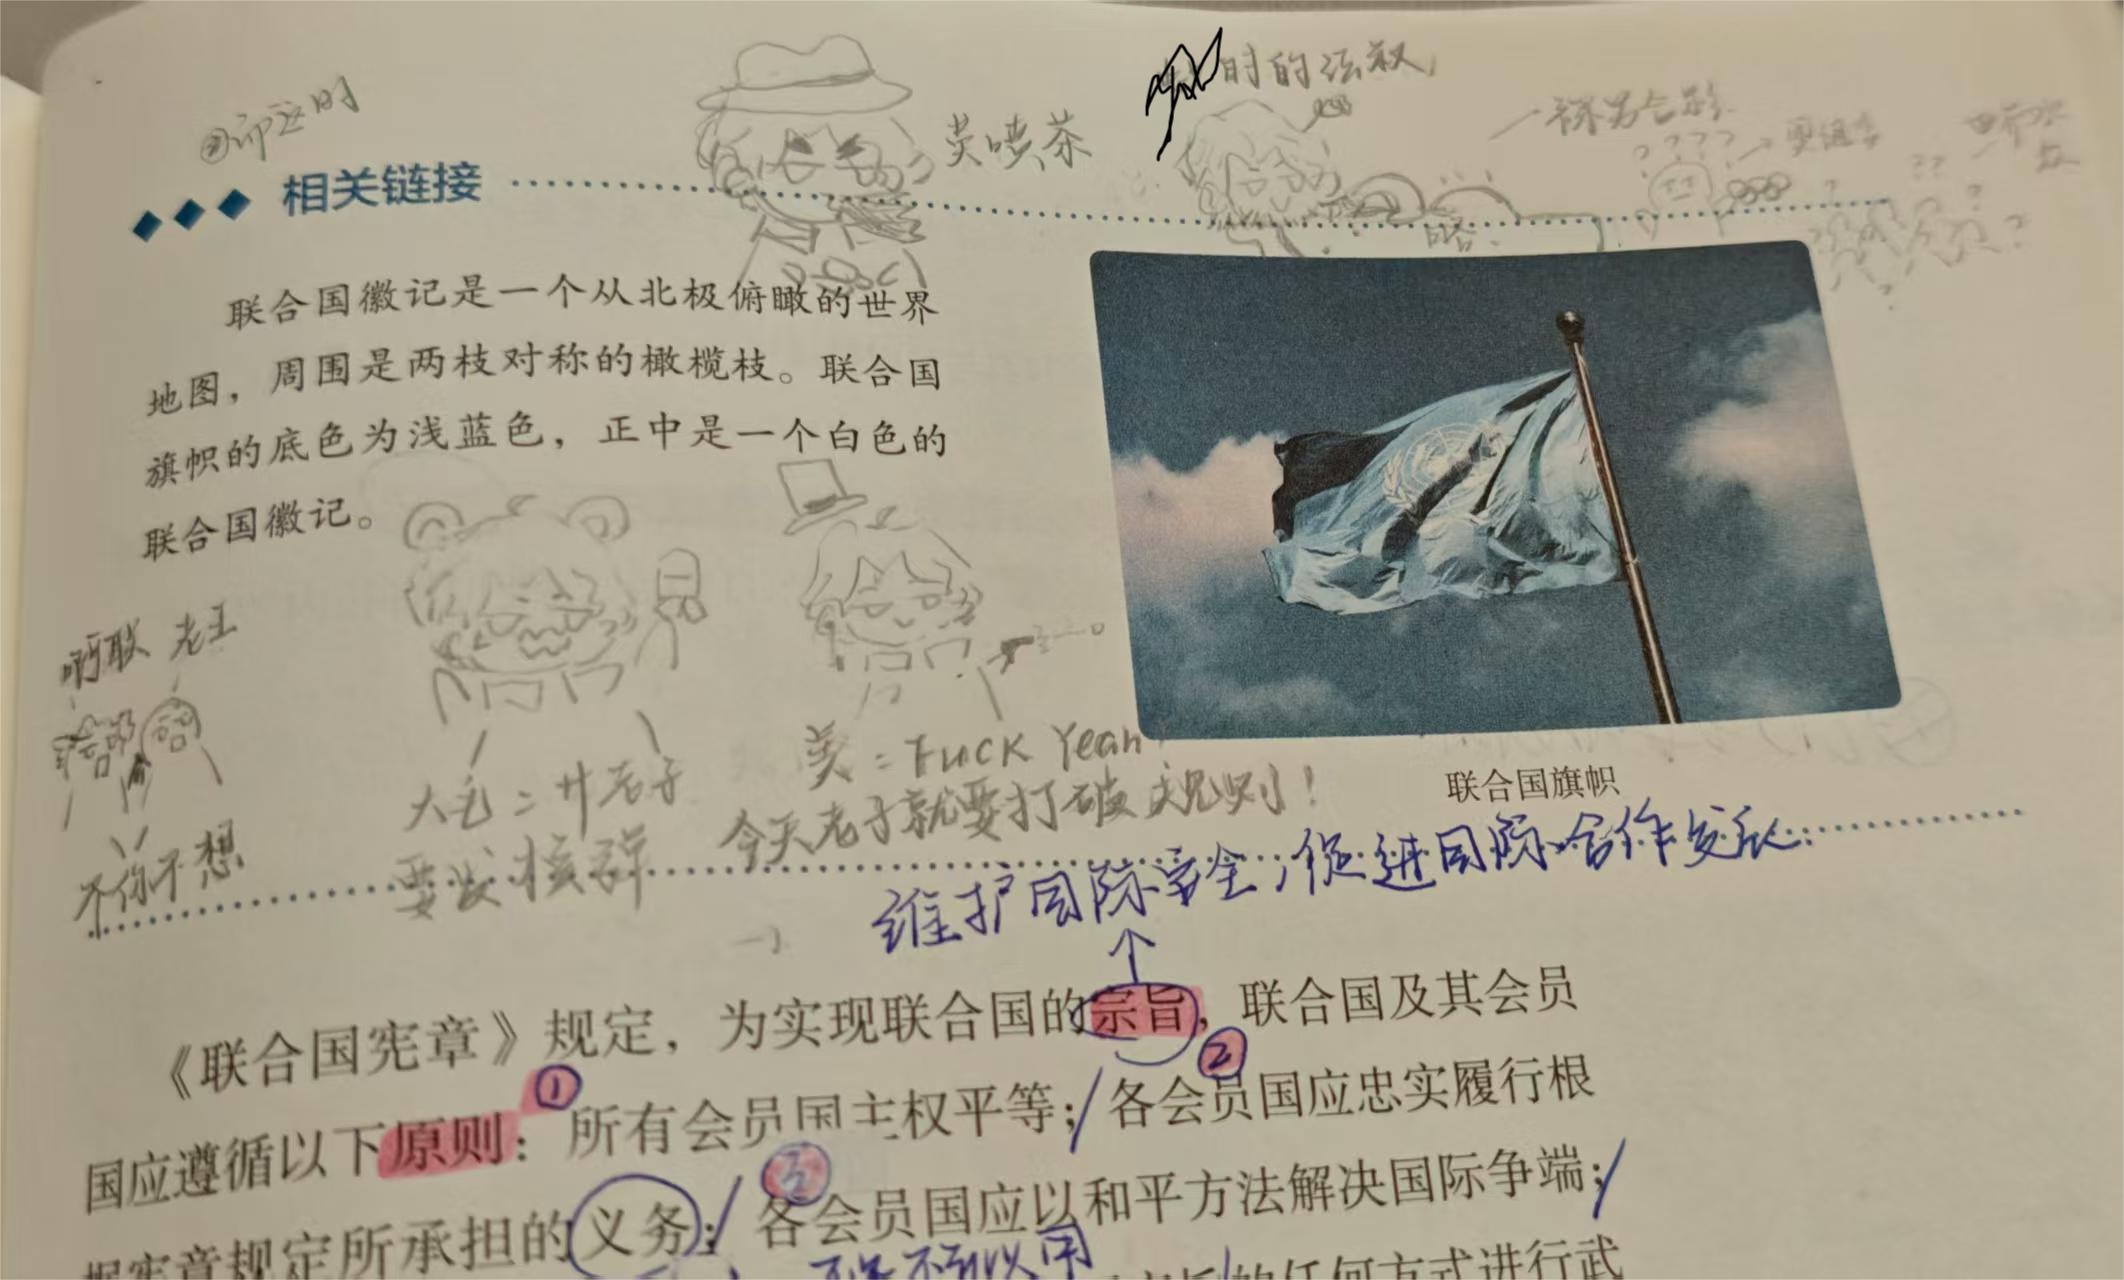 时的法叔
英喷茶
相关链接
联合国徽记是一个从北极俯瞰的世界
地图，周围是两枝对称的橄榄枝。联合国
旗帜的底色为浅蓝色，正中是一个白色的
联合国徽记。
老王
不你不想
大毛：廾老子
要发核弹
美：Fuck Yeah！
今天老子就要打破规则！
联合国旗帜
维护国际安全，促进国际合作发展
《联合国宪章》规定，为实现联合国的宗旨，联合国及其会员
国应遵循以下原则：①所有会员国主权平等；②各会员国应忠实履行根
据宪章规定所承担的义务；③各会员国应以和平方法解决国际争端；
的任何方式进行武